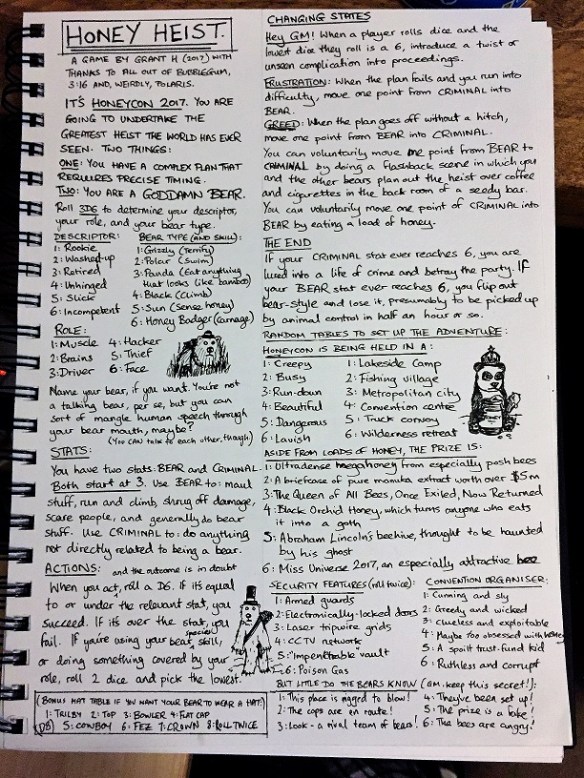 HONEY HEIST.
A GAME BY GRANT H (2017) WITH
THANKS TO ALL OUT OF BUBBLEGUM,
3:16 AND, WEIRDLY, POLARIS.
IT'S HONEYCON 2017. YOU ARE
GOING TO UNDERTAKE THE
GREATEST HEIST THE WORLD HAS EVER
SEEN. TWO THINGS:
ONE: YOU HAVE A COMPLEX PLAN THAT
REQUIRES PRECISE TIMING.
TWO: YOU ARE A GODDAMN BEAR.
Roll 3D6 to determine your descriptor,
your role, and your bear type.
DESCRIPTOR:
1: Rookie
2: Washed-up
3: Retired
4: Unhinged
5: Slick
6: Incompetent
BEAR TYPE (AND SKILL):
1: Grizzly (Terrify)
2: Polar (Swim)
3: Panda (Eat anything
that looks like bamboo)
4: Black (Climb)
5: Sun (Sense honey)
6: Honey Badger (carnage)
ROLE:
1: Muscle
2: Brains
3: Driver
4: Hacker
5: Thief
6: Face
Name your bear, if you want. You're not
a talking bear, per se, but you can
sort of mangle human speech through
your bear mouth, maybe?
(YOU CAN talk to each other, though)
STATS:
You have two stats: BEAR and CRIMINAL.
Both start at 3. Use BEAR to: maul
stuff, run and climb, shrug off damage,
scare people, and generally do bear
stuff. Use CRIMINAL to: do anything
not directly related to being a bear.
ACTIONS: and the outcome is in doubt
When you act, roll a D6. If it's equal
to or under the relevant stat, you
succeed. If it's over the stat, you
fail. If you're using your bear special skill,
or doing something covered by your
role, roll 2 dice and pick the lowest.
(BONUS HAT TABLE IF YOU WANT YOUR BEAR TO WEAR A HAT:)
1: TRILBY 2: TOP 3: BOWLER 4: FLAT CAP
(D8) 5: COWBOY 6: FEZ 7: CROWN 8: ROLL TWICE
CHANGING STATES
Hey GM! When a player rolls dice and the
lowest dice they roll is a 6, introduce a twist or
unseen complication into proceedings.
FRUSTRATION: When the plan fails and you run into
difficulty, move one point from CRIMINAL into
BEAR.
GREED: When the plan goes off without a hitch,
move one point from BEAR into CRIMINAL.
You can voluntarily move one point from BEAR to
CRIMINAL by doing a flashback scene in which you
and the other bears plan out the heist over coffee
and cigarettes in the back room of a seedy bar.
You can voluntarily move one point of CRIMINAL into
BEAR by eating a load of honey.
THE END
If your CRIMINAL stat ever reaches 6, you are
lured into a life of crime and betray the party. IF
your BEAR stat ever reaches 6, you flip out
bear-style and lose it, presumably to be picked up
by animal control in half an hour or so.
RANDOM TABLES TO SET UP THE ADVENTURE:
HONEYCON IS BEING HELD IN A:
1: Creepy
2: Busy
3: Run-down
4: Beautiful
5: Dangerous
6: Lavish
1: Lakeside Camp
2: Fishing village
3: Metropolitan city
4: Convention centre
5: Truck convoy
6: Wilderness retreat
HONEY
ASIDE FROM LOADS OF HONEY, THE PRIZE IS:
1: Ultradense megahoney from especially posh bees
2: A briefcase of pure manuka extract worth over $5m
3: The Queen of All Bees, Once Exiled, Now Returned
4: Black Orchid Honey, which turns anyone who eats
it into a goth
5: Abraham Lincoln's beehive, thought to be haunted
by his ghost
6: Miss Universe 2017, an especially attractive bee
SECURITY FEATURES (roll twice):
1: Armed guards
2: Electronically-locked doors
3: Laser tripwire grids
4: CCTV network
5: "Impenetrable" vault
6: Poison Gas
CONVENTION ORGANISER:
1: Cunning and sly
2: Greedy and wicked
3: Clueless and exploitable
4: Maybe too obsessed with honey
5: A spoilt trust-fund kid
6: Ruthless and corrupt
BUT LITTLE DO THE BEARS KNOW (GM, keep this secret!):
1: This place is rigged to blow!
2: The cops are en route!
3: Look – a rival team of bears!
4: They've been set up!
5: The prize is a fake!
6: The bees are angry!